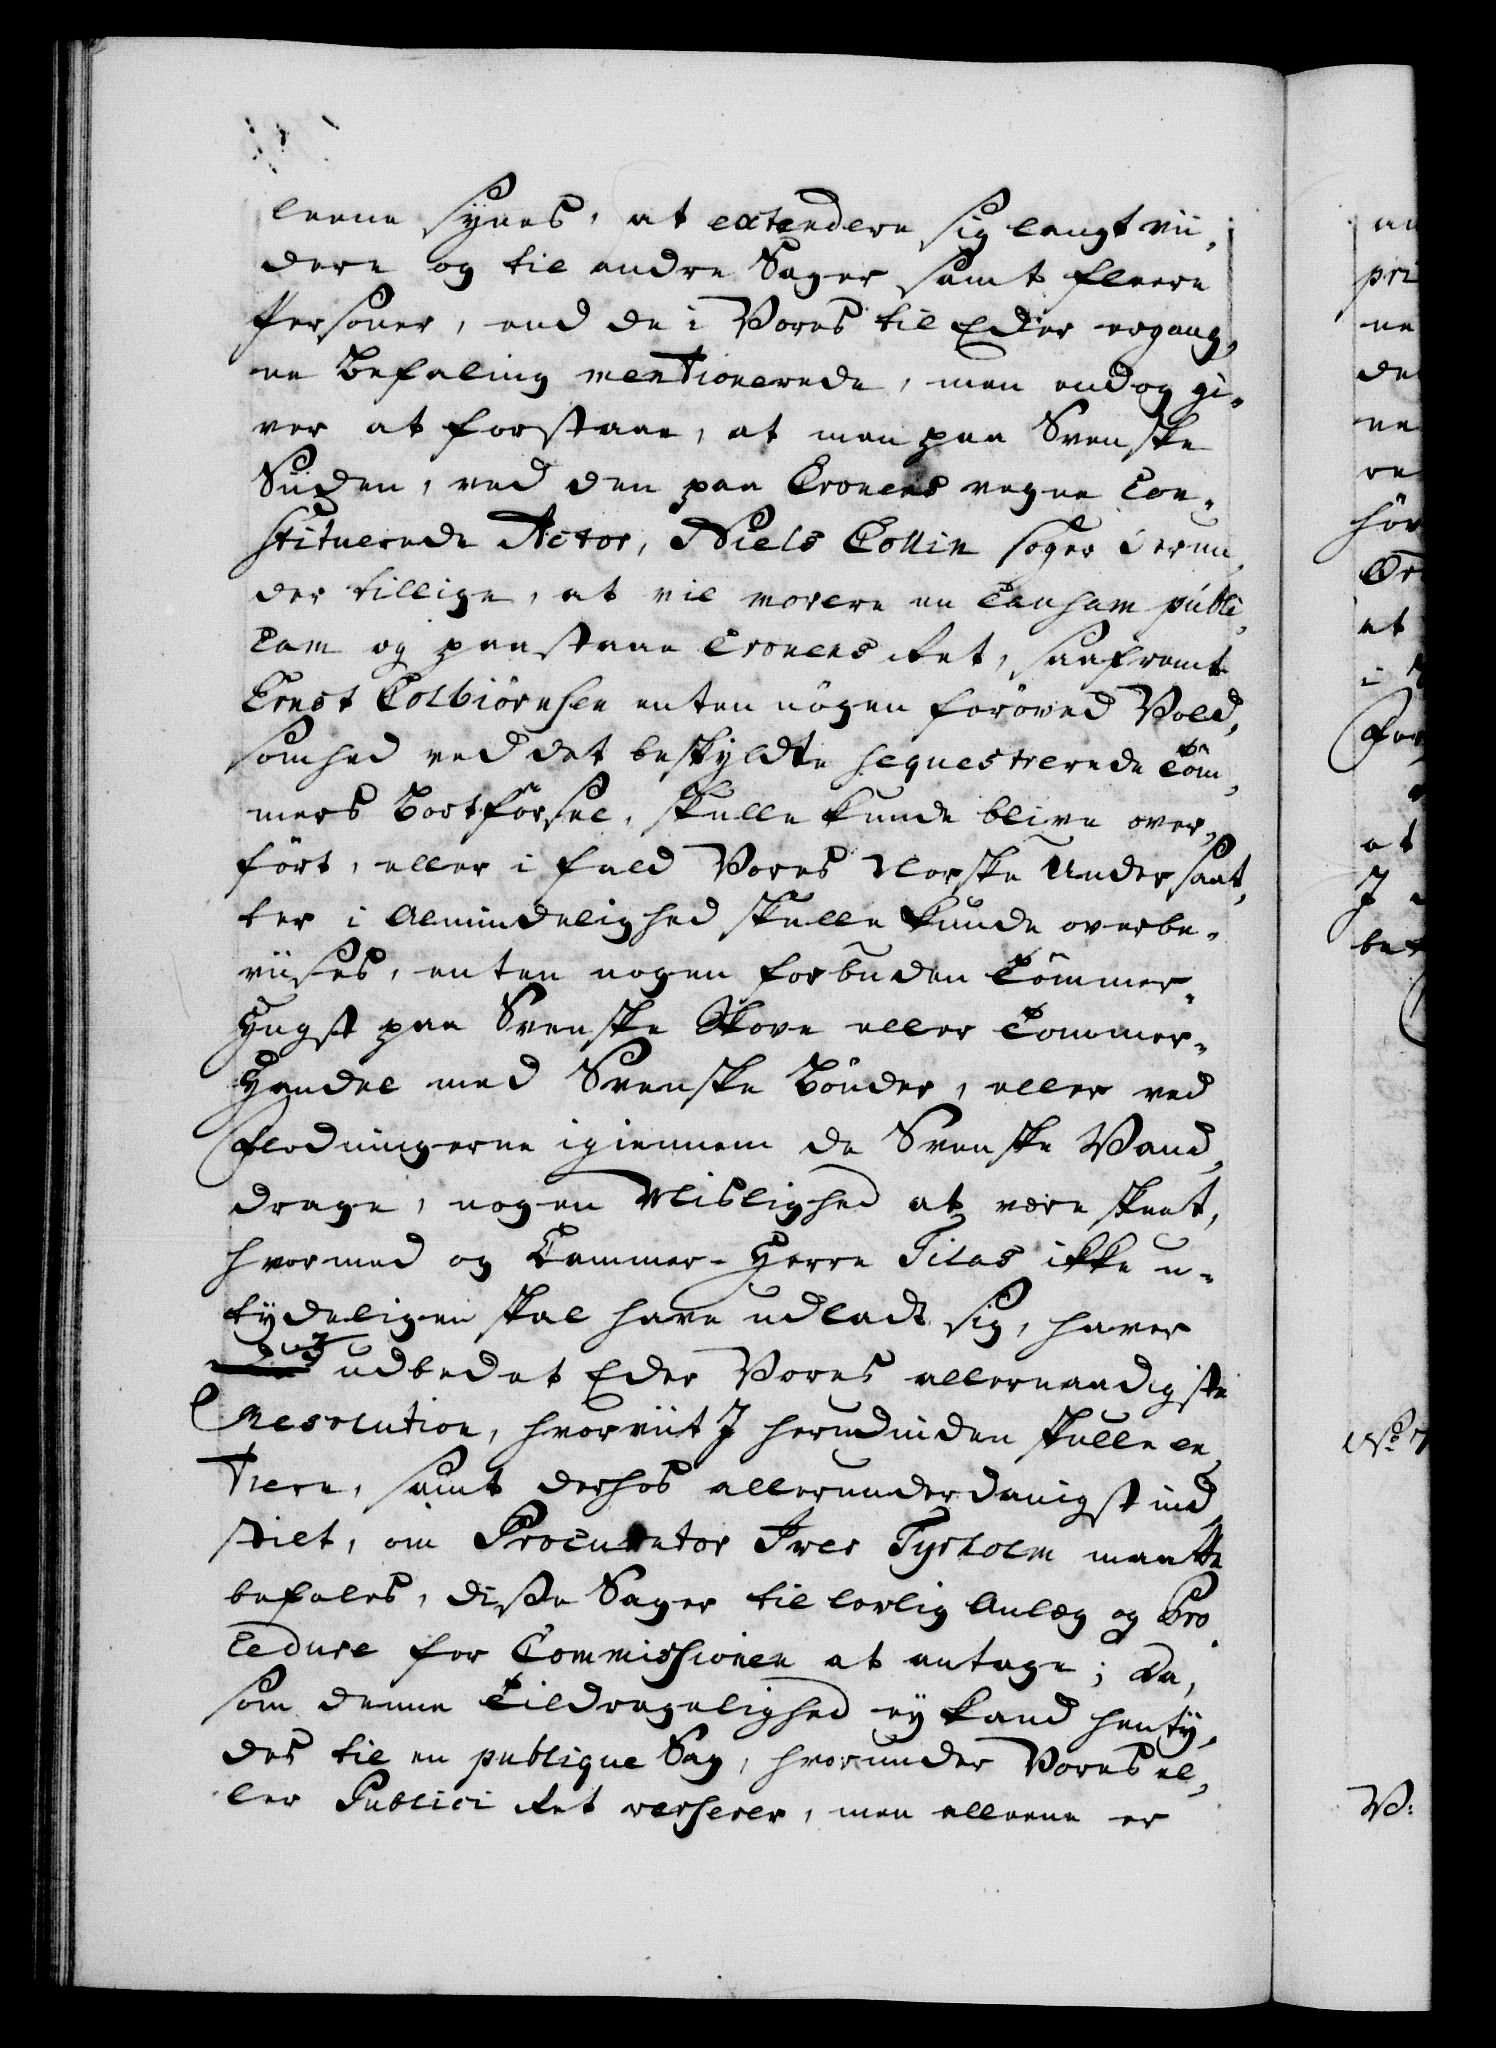 leene synes, at extendere sig langt vii,
dere og til andre Sager samt fleere
Personer, end de i Vores til Eder ergang,
ne Befaling mentionerede, men endog gi-
ver at forstaae, at man paa Svenske
Siiden, ved den paa Cronens vegne Con-
stituerede Actor, Niels Collin søger derun,
der tillige, at vil movere en Causam publi,
cam og paastaae Cronens Ret, saafremt
Ernst Colbiørnsen enten nogen forøved Vold,
somhed ved det beskyldte sequestrerede Töm,
mers Bortförsel, skulle kunde blive over,
fört, eller i fald Vores Norske Undersaat,
ter i Almindelighed skulle kunde overbe-
viises, enten nogen forbuden Tömmer-
Hugst paa Svenske Skove eller Tommer-
Handel med Svenske Bönder, eller ved
Flodningerne igiennem de Svenske Vand,
drage, nogen Mislighed at være skeet,
hvormed og Cammer-Herre Tilas ikke u-
tydeligen skal have udladt sig, haver
I udbedet Eder Vores allernaadigste
Resolution, hvorviit I herudinden skulle en,
trere, samt derhos allerunderdanigst ind,
stilt, om Procurator Iver Tyrholm maatte
befales, disse Sager til lovlig Anlæg og Pro,
cedure for Commissionen at antage; Da,
som denne Tildragelighed ey kand henty,
des til en publique Sag, hvorunder Vores el,
ler Publici Ret verserer, men alleene er